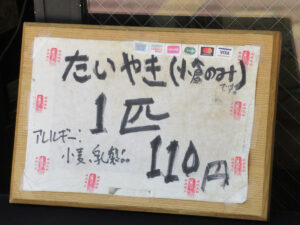 たいやき(小倉のみ)です
1匹
アレルギー:
小麦、乳製品
110円